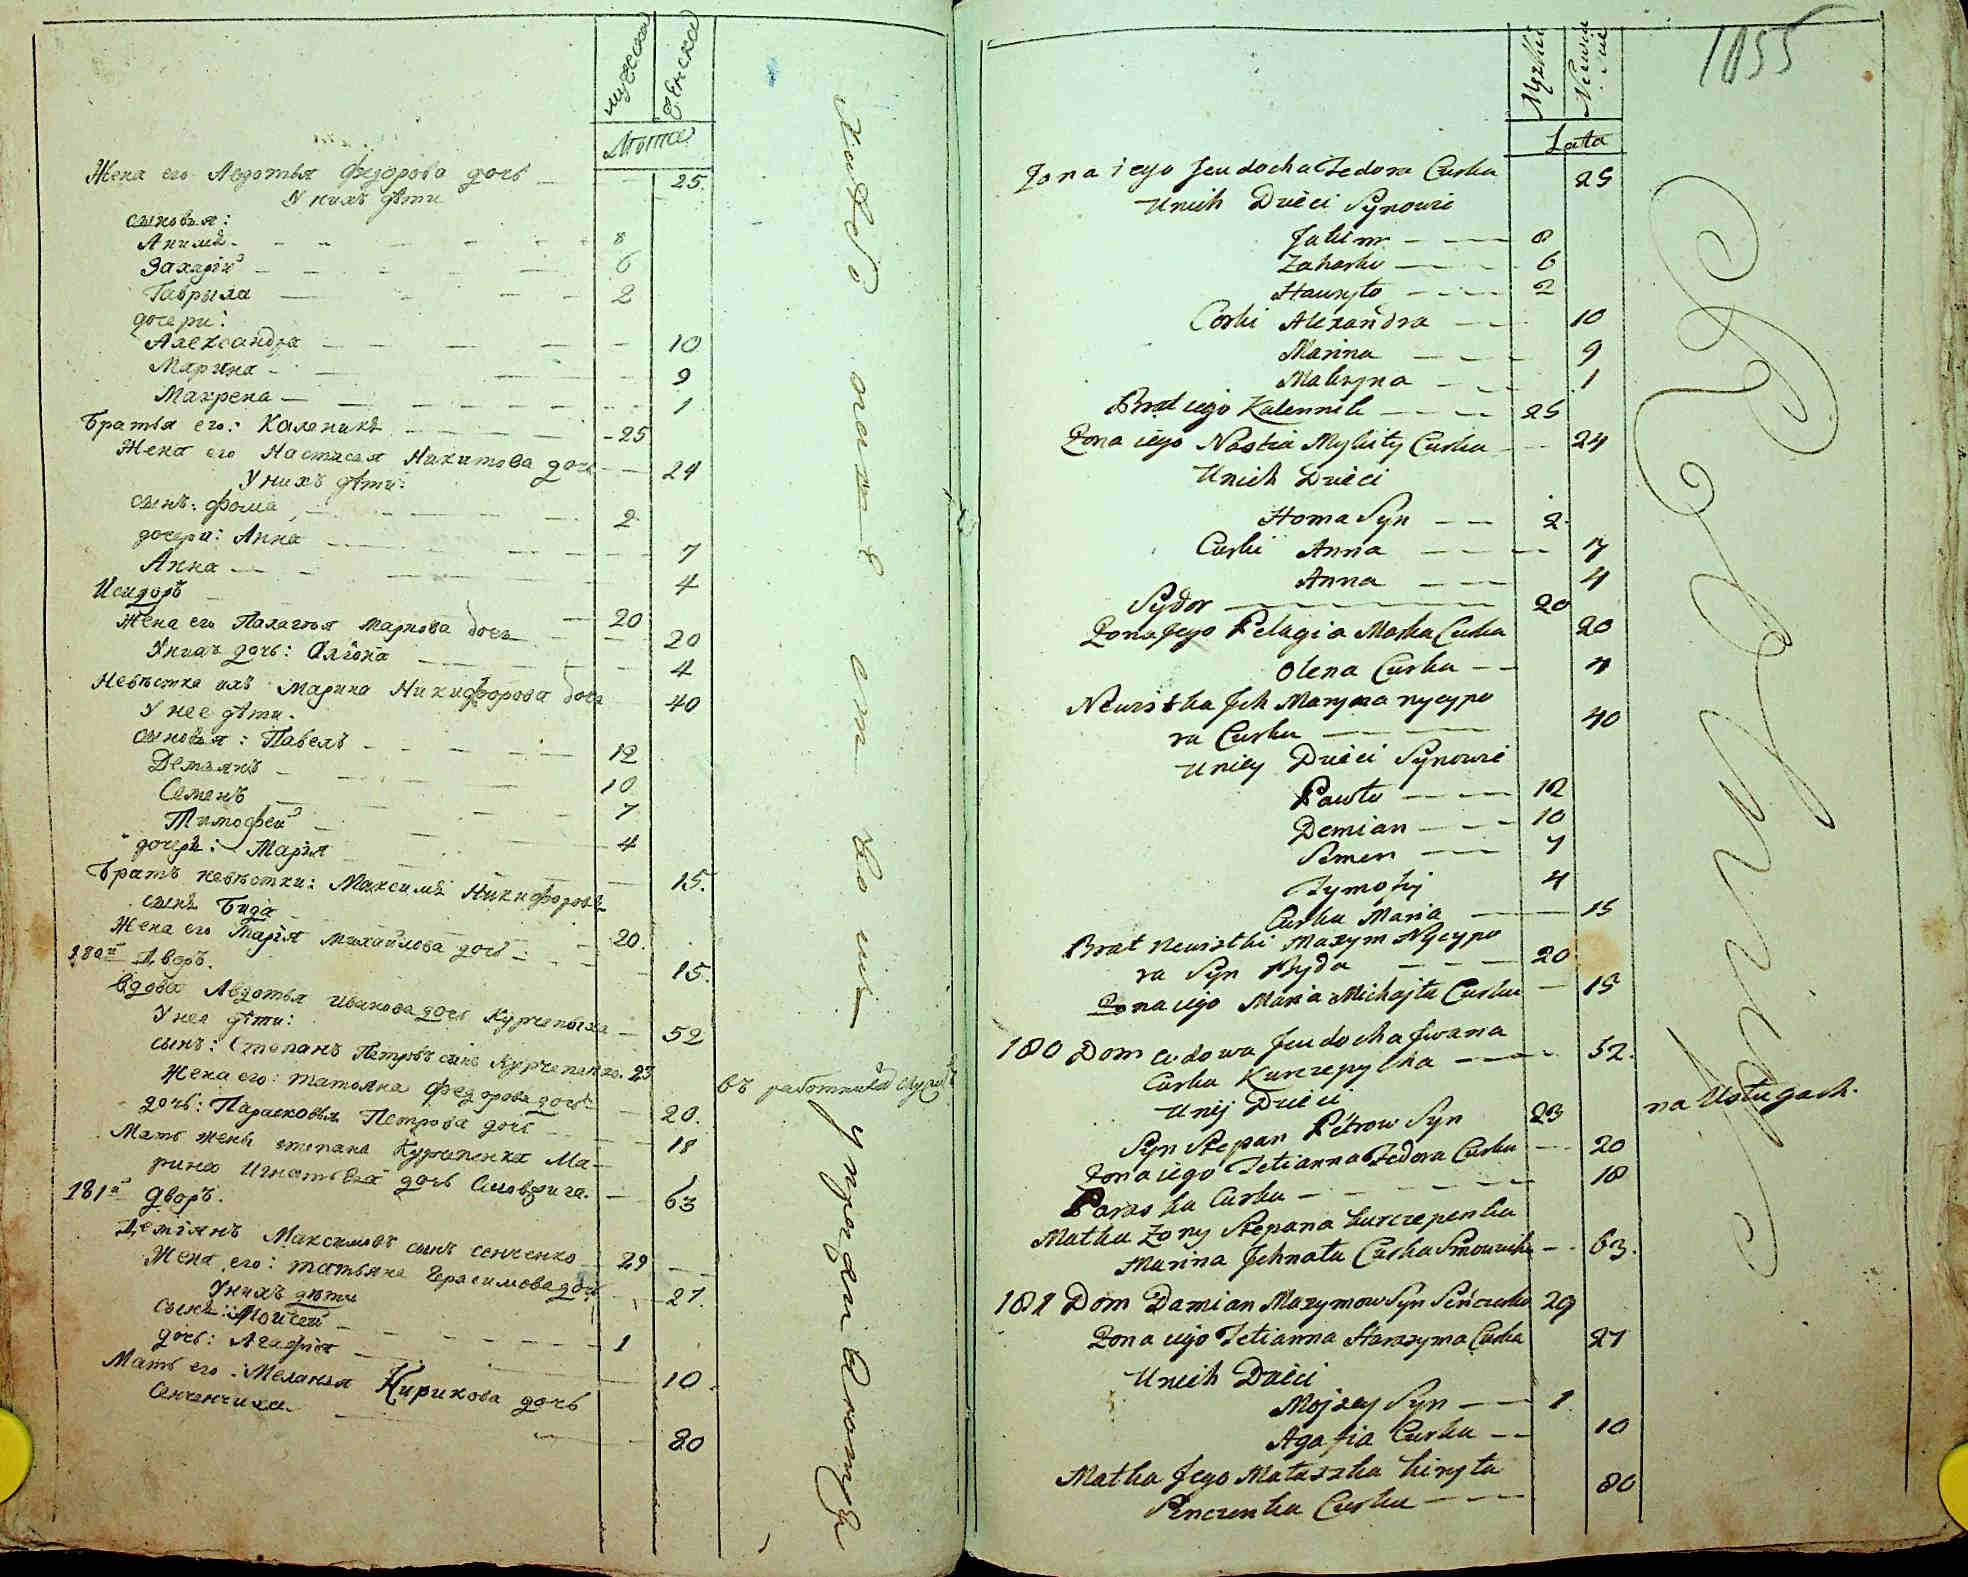 мужеска
женска
Лѣта
Жена его Авдотья Федорова дочь 25.
У нихъ дѣти
сыновья:
Акимъ 8
Захарій 6
Гаврыла 2
дочери:
Александра 10
Марина 9
Макрена 1
Братья его: Каленикъ 25
Жена его Настасья Никитова дочь 24
У нихъ дѣти:
сынъ: Фома 2
дочери: Анна 7
Анна 4
Исидоръ 20
Жена его Палагѣя Маркова дочь 20
У нихъ дочь: Олѣона 4
Невѣстка ихъ Марина Никифорова дочь 40
У нее дѣти.
сыновья: Павелъ 12
Демьянъ 10
Семенъ 7
Тимофей 4
дочерь: Марія 15.
Братъ невѣстки: Максимъ Никифоровъ
сынъ Бида 20.
Жена его Марія Михайлова дочь 15.
180й Дворъ.
Вдова Авдотья Иванова дочь Курчепыха 52
У нея дѣти:
сынъ: Степанъ Петровъ сынъ Курчепенко. 23
въ работникахъ
Жена его: Татьяна Федорова дочь 20.
дочь: Парасковья Петрова дочь 18
Мать жены Степана Курчепенка Ма-
рина Игнатьева дочь 63
181й Дворъ.
Демянъ Максимовъ сынъ Сенченко 29
Жена его: Татьяна Герасимова дочь 27.
У нихъ дѣти
сынъ: Мойсей 1
дочь: Агафія 10.
Мать его: Меланья Кирикова дочь
Сенченчиха. 80
1855
Męzkie
Lata
Żona iego Jeudocha Fedora Curka 25
Unich Dzieci Synowie
Jakim 8
Zaharko 6
Hawryło 2
Corki Alexandra 10
Marina 9
Makryna 1
Brat iego Kalennik 25
Żona iego Nastia Mykity Curka 24
Unich Dzieci
Homa Syn 2.
Curki Anna 7
Anna 4
Sydor 20
Żona Jego Pelagia Marka Curka 20
Olena Curka 4
Newistka Jch Maryna nycypo
ra Curka 40
Uniey Dzieci Synowie
Pawło 12
Demian 10
Semen 7
Tymofij 4
Curka Maria 15
Brat newistki Maxym Nycypo
ra Syn Byda 20
Żona iego Maria Michajła Curka 15
180 Dom wdowa Jeudocha Jwana
Curka Kurczepycha 52.
Unij Dzieci
Syn Stepan Petrow Syn 23
na Usługach.
Żona iego Tetianna Fedora Curka 20
Paraska Curka 18
Matka Żony Stepana Kurczepenka
Marina Jchnata Curka 63.
181 Dom Damian Maxymow Syn Sieńczenko 29
Żona iego Tetianna Harasyma Curka 27
Unich Dzieci
Mojzey Syn 1
Agafia Curka 10
Matka Jego Małaszka Kiryła
Senczenka Curka 80